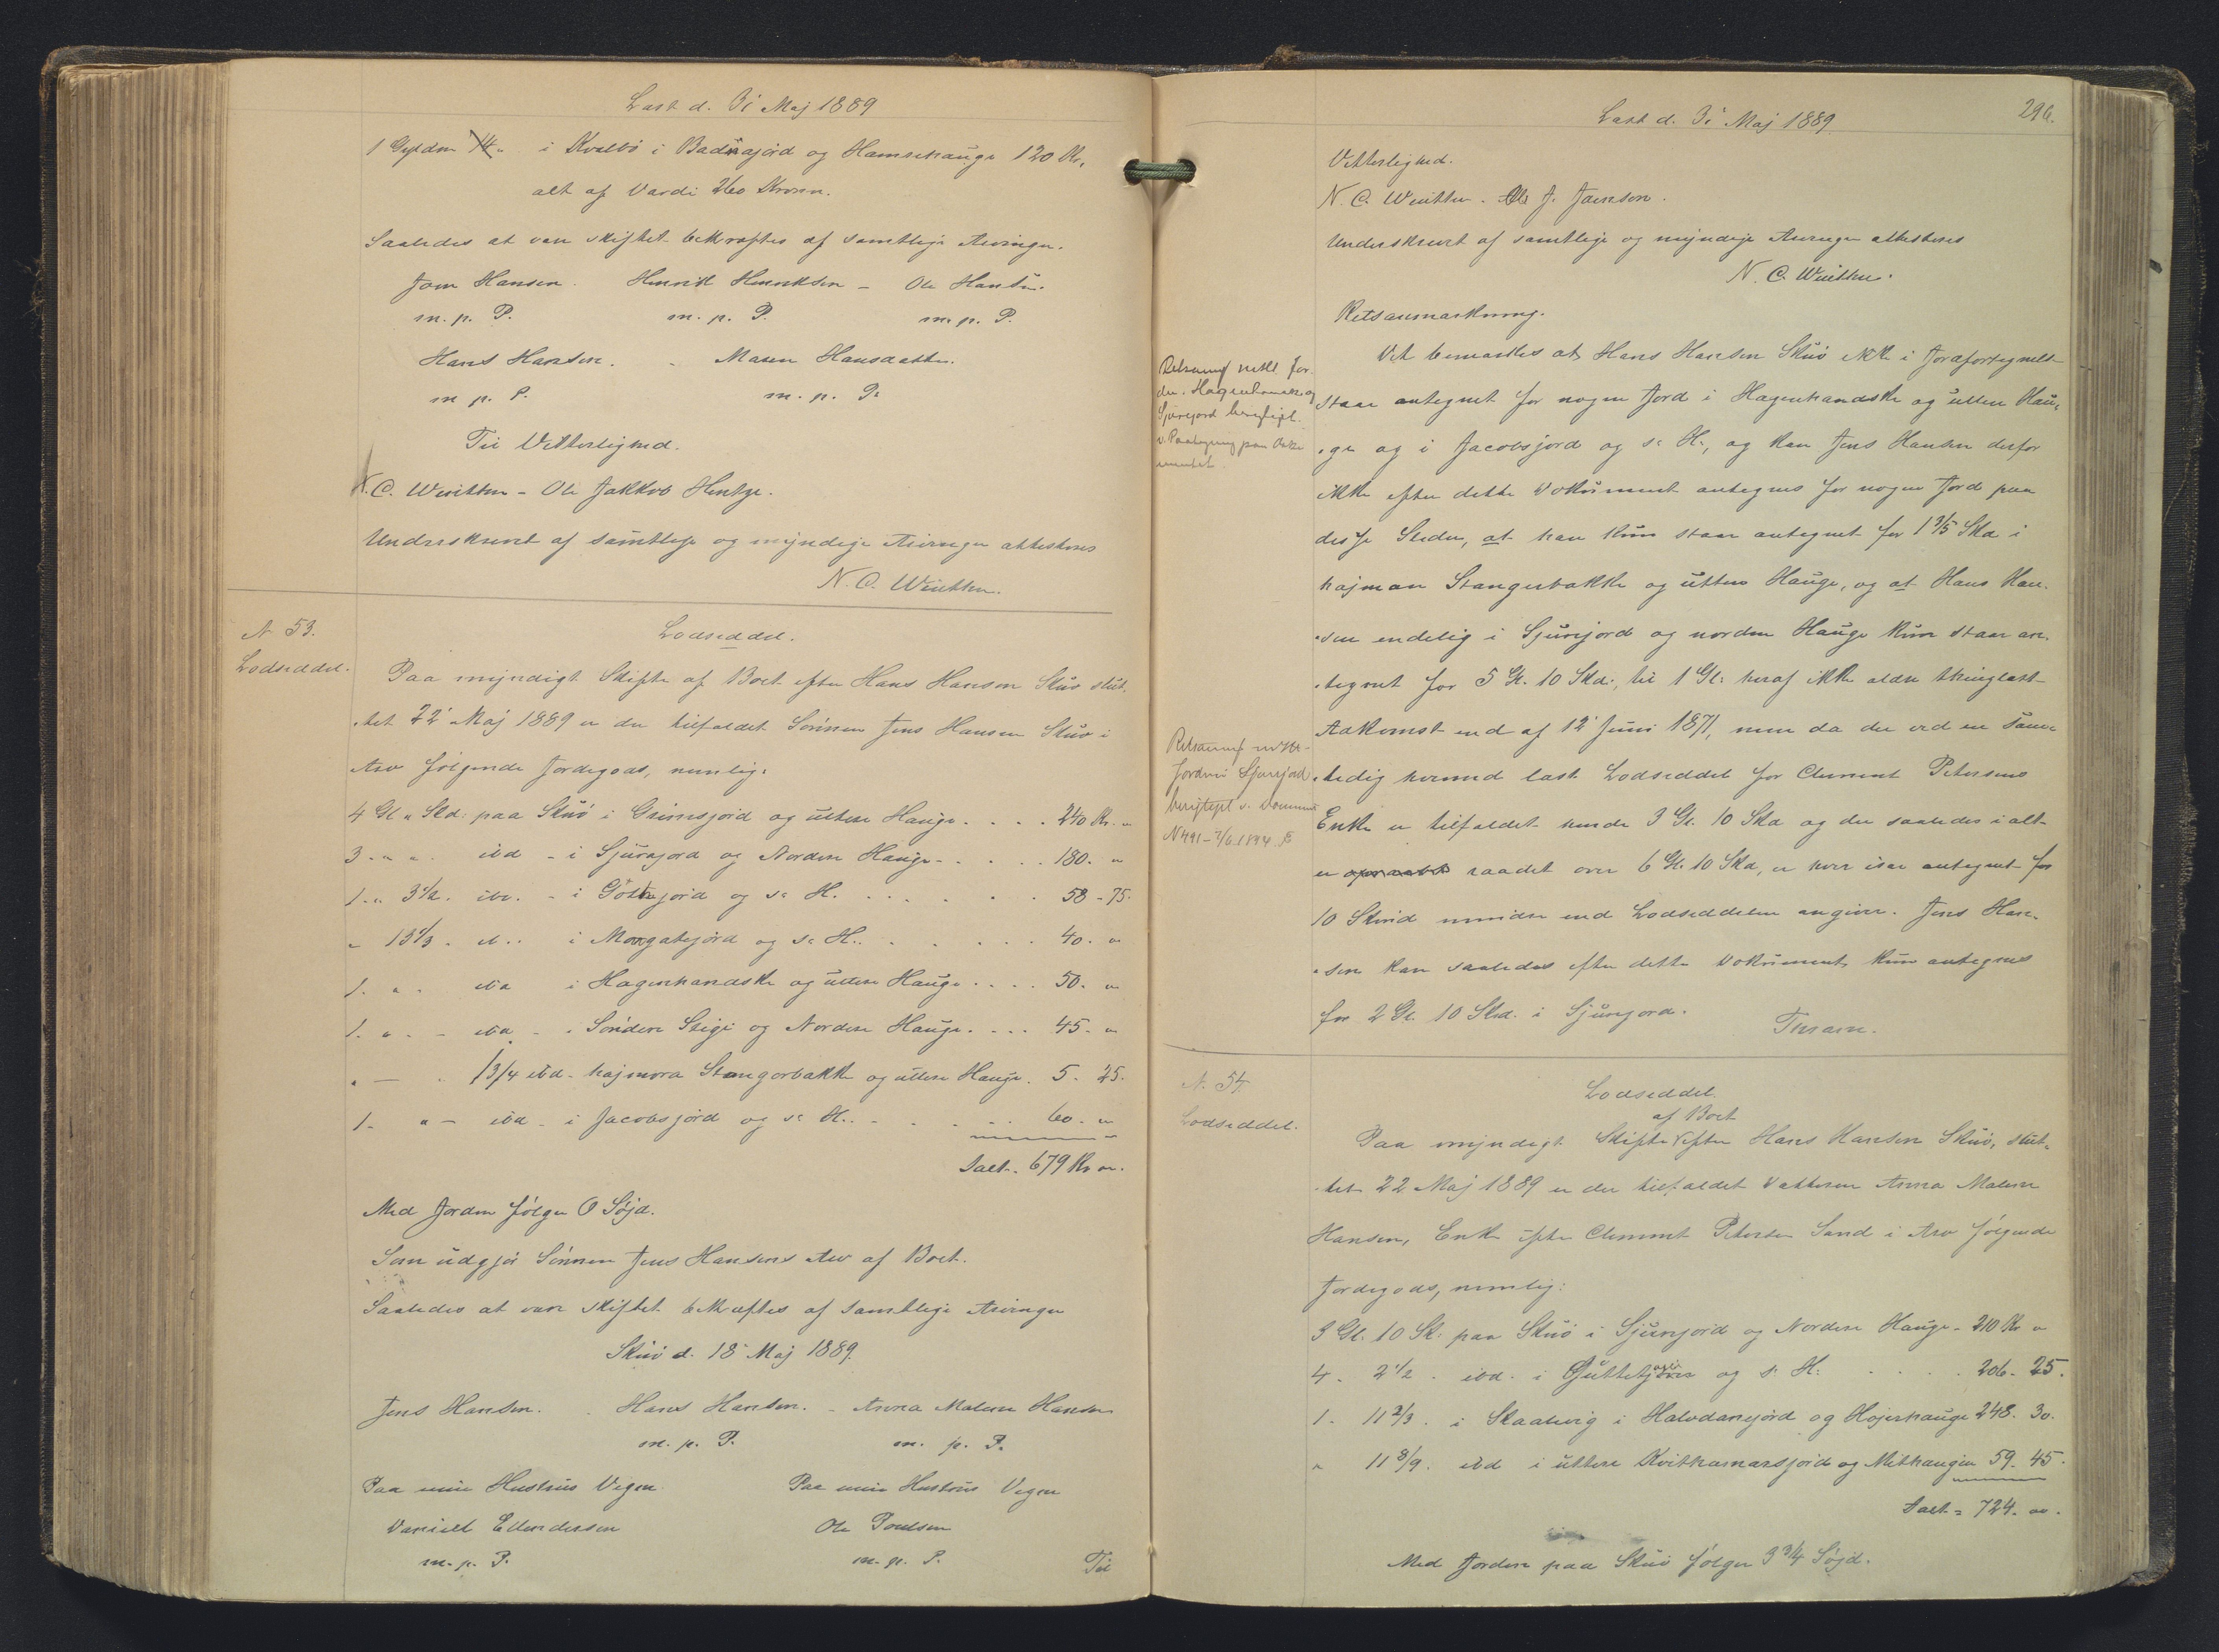 Læst d. 31 Maj 1889
1 Gylden " i Kvalbø i Badurajord og Hamrehauge 120 Kr,
alt af Værdi 260 Kroner.
Saaledes at være skiftet bekræftes af samtlige Arvinger.
Joen Hansen. Henrik Henriksen - Ole Hansen.
m. p. P. m. p. P. m. p. P.
Hans Hansen. - Maren Hansdatter.
m. p. P. m. p. P.
Til Vitterlighed.
N. C. Winther - Ole Jakkob Hentze.
Underskrevet af samtlige og myndige Arvinger attesteres
N. C. Winther.
N. 53.
Lodseddel.
Lodseddel.
Paa myndigt Skifte af Boet efter Hans Hansen Skuø slut-
tet 22' Maj 1889 er der tilfaldet Sønnen Jens Hansen Skuø i
Arv følgende Jordegods, nemlig:
4 Gl " Skd: paa Skuø i Grimsjord og uttere Hauge . . . . 240 Kr. "
3 - " " ibd - i Sjurajord og Nordere Hauge - . . . . 180. "
1. " 3 1/2. ibd. - i jord og s: H. . . . . . . 58 - 75.
" 13 1/3 . ib.. i jord og s: H.. . . . . . 40. "
1. " . ibd i Hagenhandske og uttere Hauge . . . . 50. "
1. " - ibd - i Søndere Stige og Nordere Hauge. . . . 45. "
" — . 1 3/4 ibd - hajmora Stangarbakke og uttere Hauge. 5. 25.
1 - " - ibd - i Jacobsjord og s: H.. - . . . . 60. "
Ialt. 679 Kr ".
Med Jorden følger 0 Søjd.
Som udgjør Sønnen Jens Hansens Arv af Boet.
Saaledes at være skiftet bekræftes af samtlige Arvinger
Skuø d. 18' Maj 1889.
Jens Hansen. Hans Hansen. - Anna Malene Hansen
m. p. P. m. p. P.
Paa min Hustrus Vegne Paa min Hustrus Vegne
Daniel Ellendersen Ole Poulsen
m. p. P. m. p. P. Til
Læst d. 31' Maj 1889
296.
Vitterlighed.
N. C. Winther. Ole J. Joensen.
Underskrevet af samtlige og myndige Arvinger attesteres
N. C. Winther.
Retsanmærkning.
Det bemærkes at Hans Hansen Skuø ikke i Jordfortegnelsen
staar antegnet for nogen Jord i Hagenhandske og utten Hau-
ge og i Jacobsjord og s: H., og kan Jens Hansen derfor
ikke efter dette Dokument antegnes for nogen Jord paa
disse Steder, at han kun staar antegnet for 1 3/5 Skd i
hajmora Stangerbakke og uttere Hauge, og at Hans Han-
sen endelig i Sjurejord og norden Hauge kun staar an-
tegnet for 5 Gl. 10 Skd:, til 1 Gl: heraf ikke ældre thinglæst
Adkomst end af 12' Juni 1871, men da der ved en sam-
tidig hermed læst Lodseddel for Clement Petersens
Enke er tilfaldet hende 3 Gl. 10 Skd og der saaledes ialt
er raadet over 6 Gl. 10 Skd, er hver især antegnet for
10 Skind mindre end Lodseddelen angiver. Jens Han-
sen kan saaledes efter dette Dokument kun antegnes
for 2 Gl. 10 Skd. i Sjurejord.
Thrane.
Retsanmf vedk. for
den. Hagenhandske og
Sjurejord berigtiget
v. Paategning paa Doku
mentet.
Retsanmf vedk.
Jorden i Sjurejord
berigtiget v. Dokument
N 491 - 2/6 1894.
N. 54.
Lodseddel.
Lodseddel.
af Boet
Paa myndigt Skifte efter Hans Hansen Skuø, slut-
tet 22 Maj 1889 er der tilfaldet Datteren Anna Malene
Hansen, Enke efter Clement Petersen Sand i Arv følgende
Jordegods, nemlig:
3 Gl. 10 Sk: paa Skuø i Sjurejord og Nordere Hauge - 210 Kr "
4. 2 1/2 . ibd. i og s: H: . . . . 206. 25.
1. 11 2/3 . i Skaalevig i Halvdanejord og Højerhauge 248. 30.
" 11 8/9. ibd i uttere Kvithamarsjord og Mithaugen 59. 45.
Ialt = 724. ".
Med Jorden paa Skuø følger 3 3/4 Søjd.